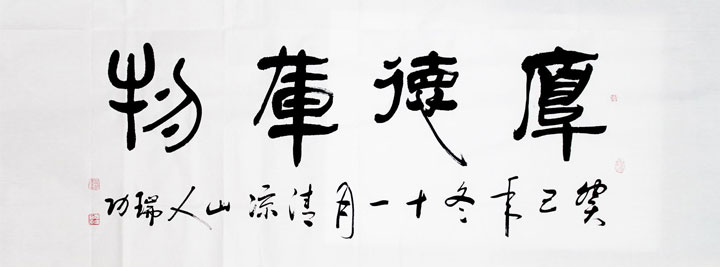 厚德載物
癸巳年冬十一月清凉山人瑞功